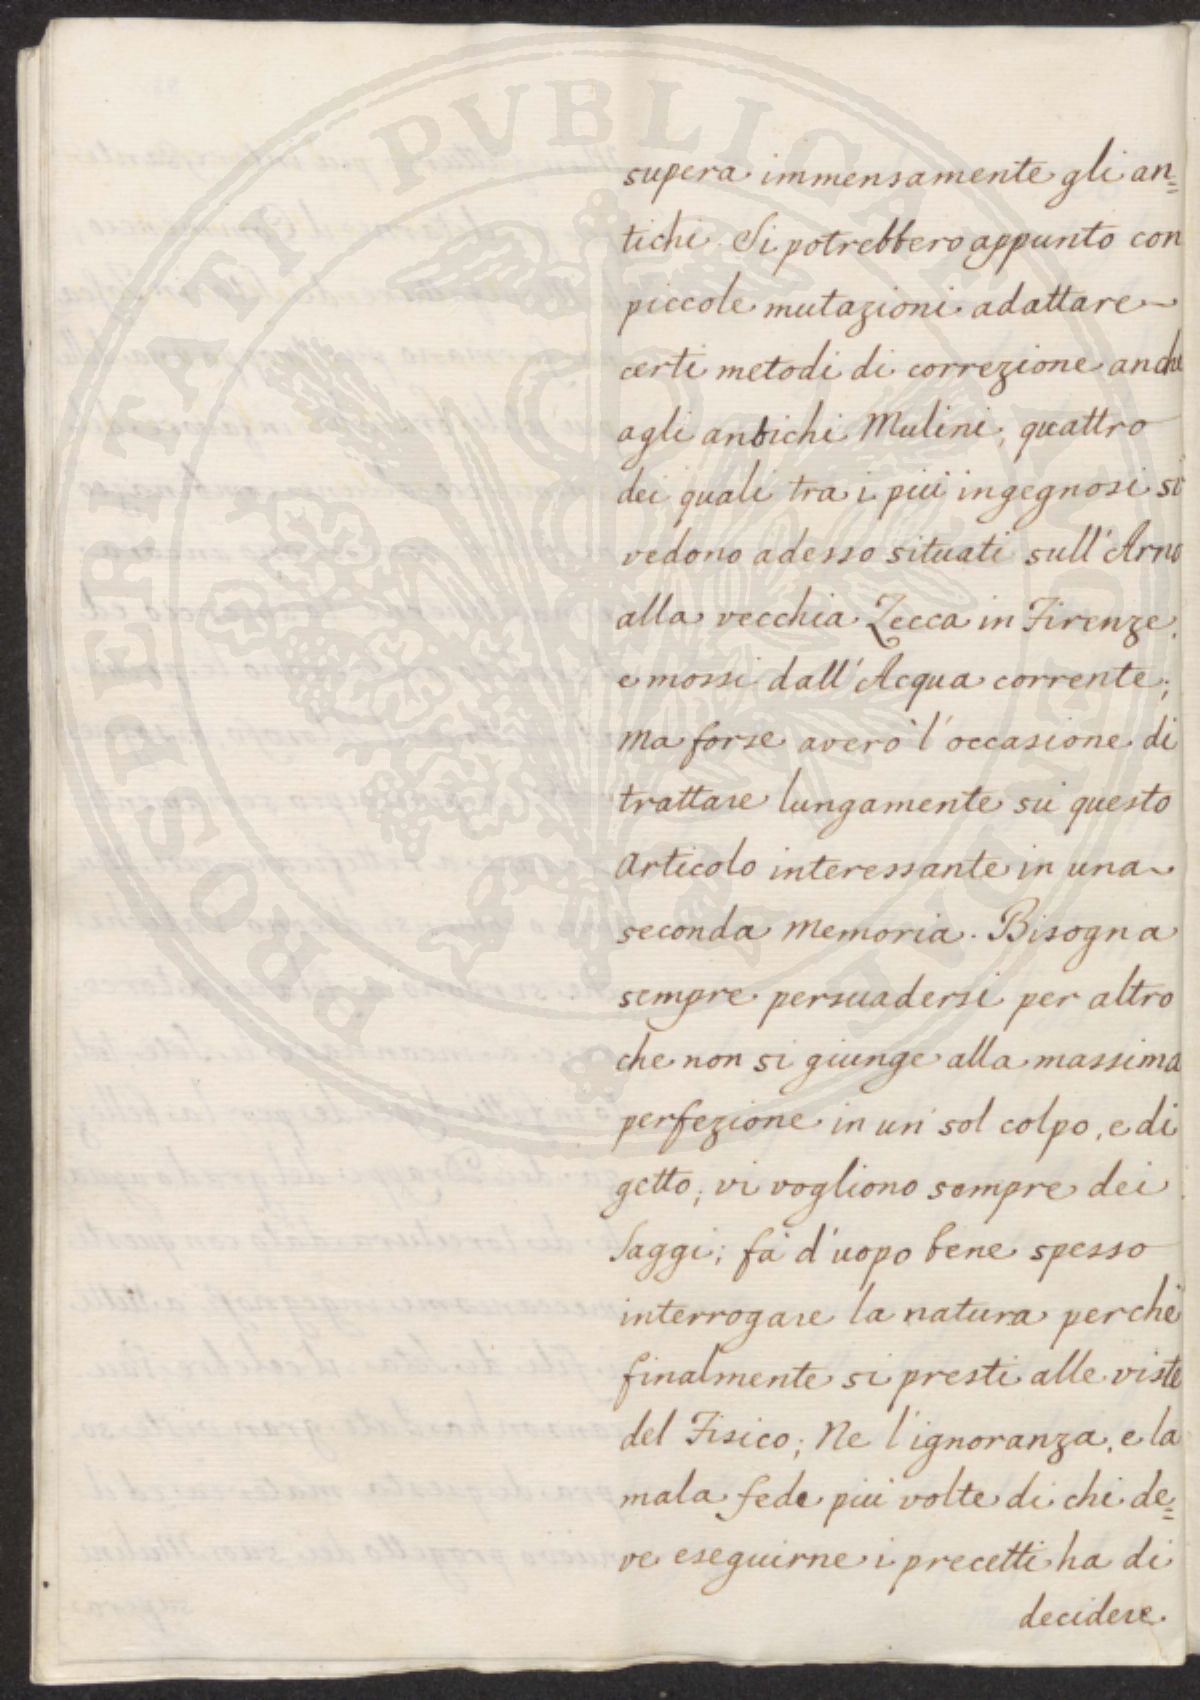 supera immensamente gli an=
tichi. Si potrebbero appunto con
piccole mutazioni adattare
certi metodi di correzione anche
agli antichi Mulini, quattro
dei quali tra i più ingegnosi si
vedono adesso situati sull'Arno
alla vecchia Zecca in Firenze,
e mossi dall'Acqua corrente;
ma forse averò l'occasione di
trattare lungamente sù questo
articolo interessante in una
seconda Memoria. Bisogna
sempre persuadersi per altro
che non si giunge alla massima
perfezione in un sol colpo, e di
getto; vi vogliono sempre dei
Saggi; fà d'uopo bene spesso
interrogare la natura perchè
finalmente si presti alle viste
del Fisico; Ne l'ignoranza, e la
mala fede più volte di chi de=
ve eseguirne i precetti ha di
decidere.
PROSPERITATI PUBLICAE AUGENDAE